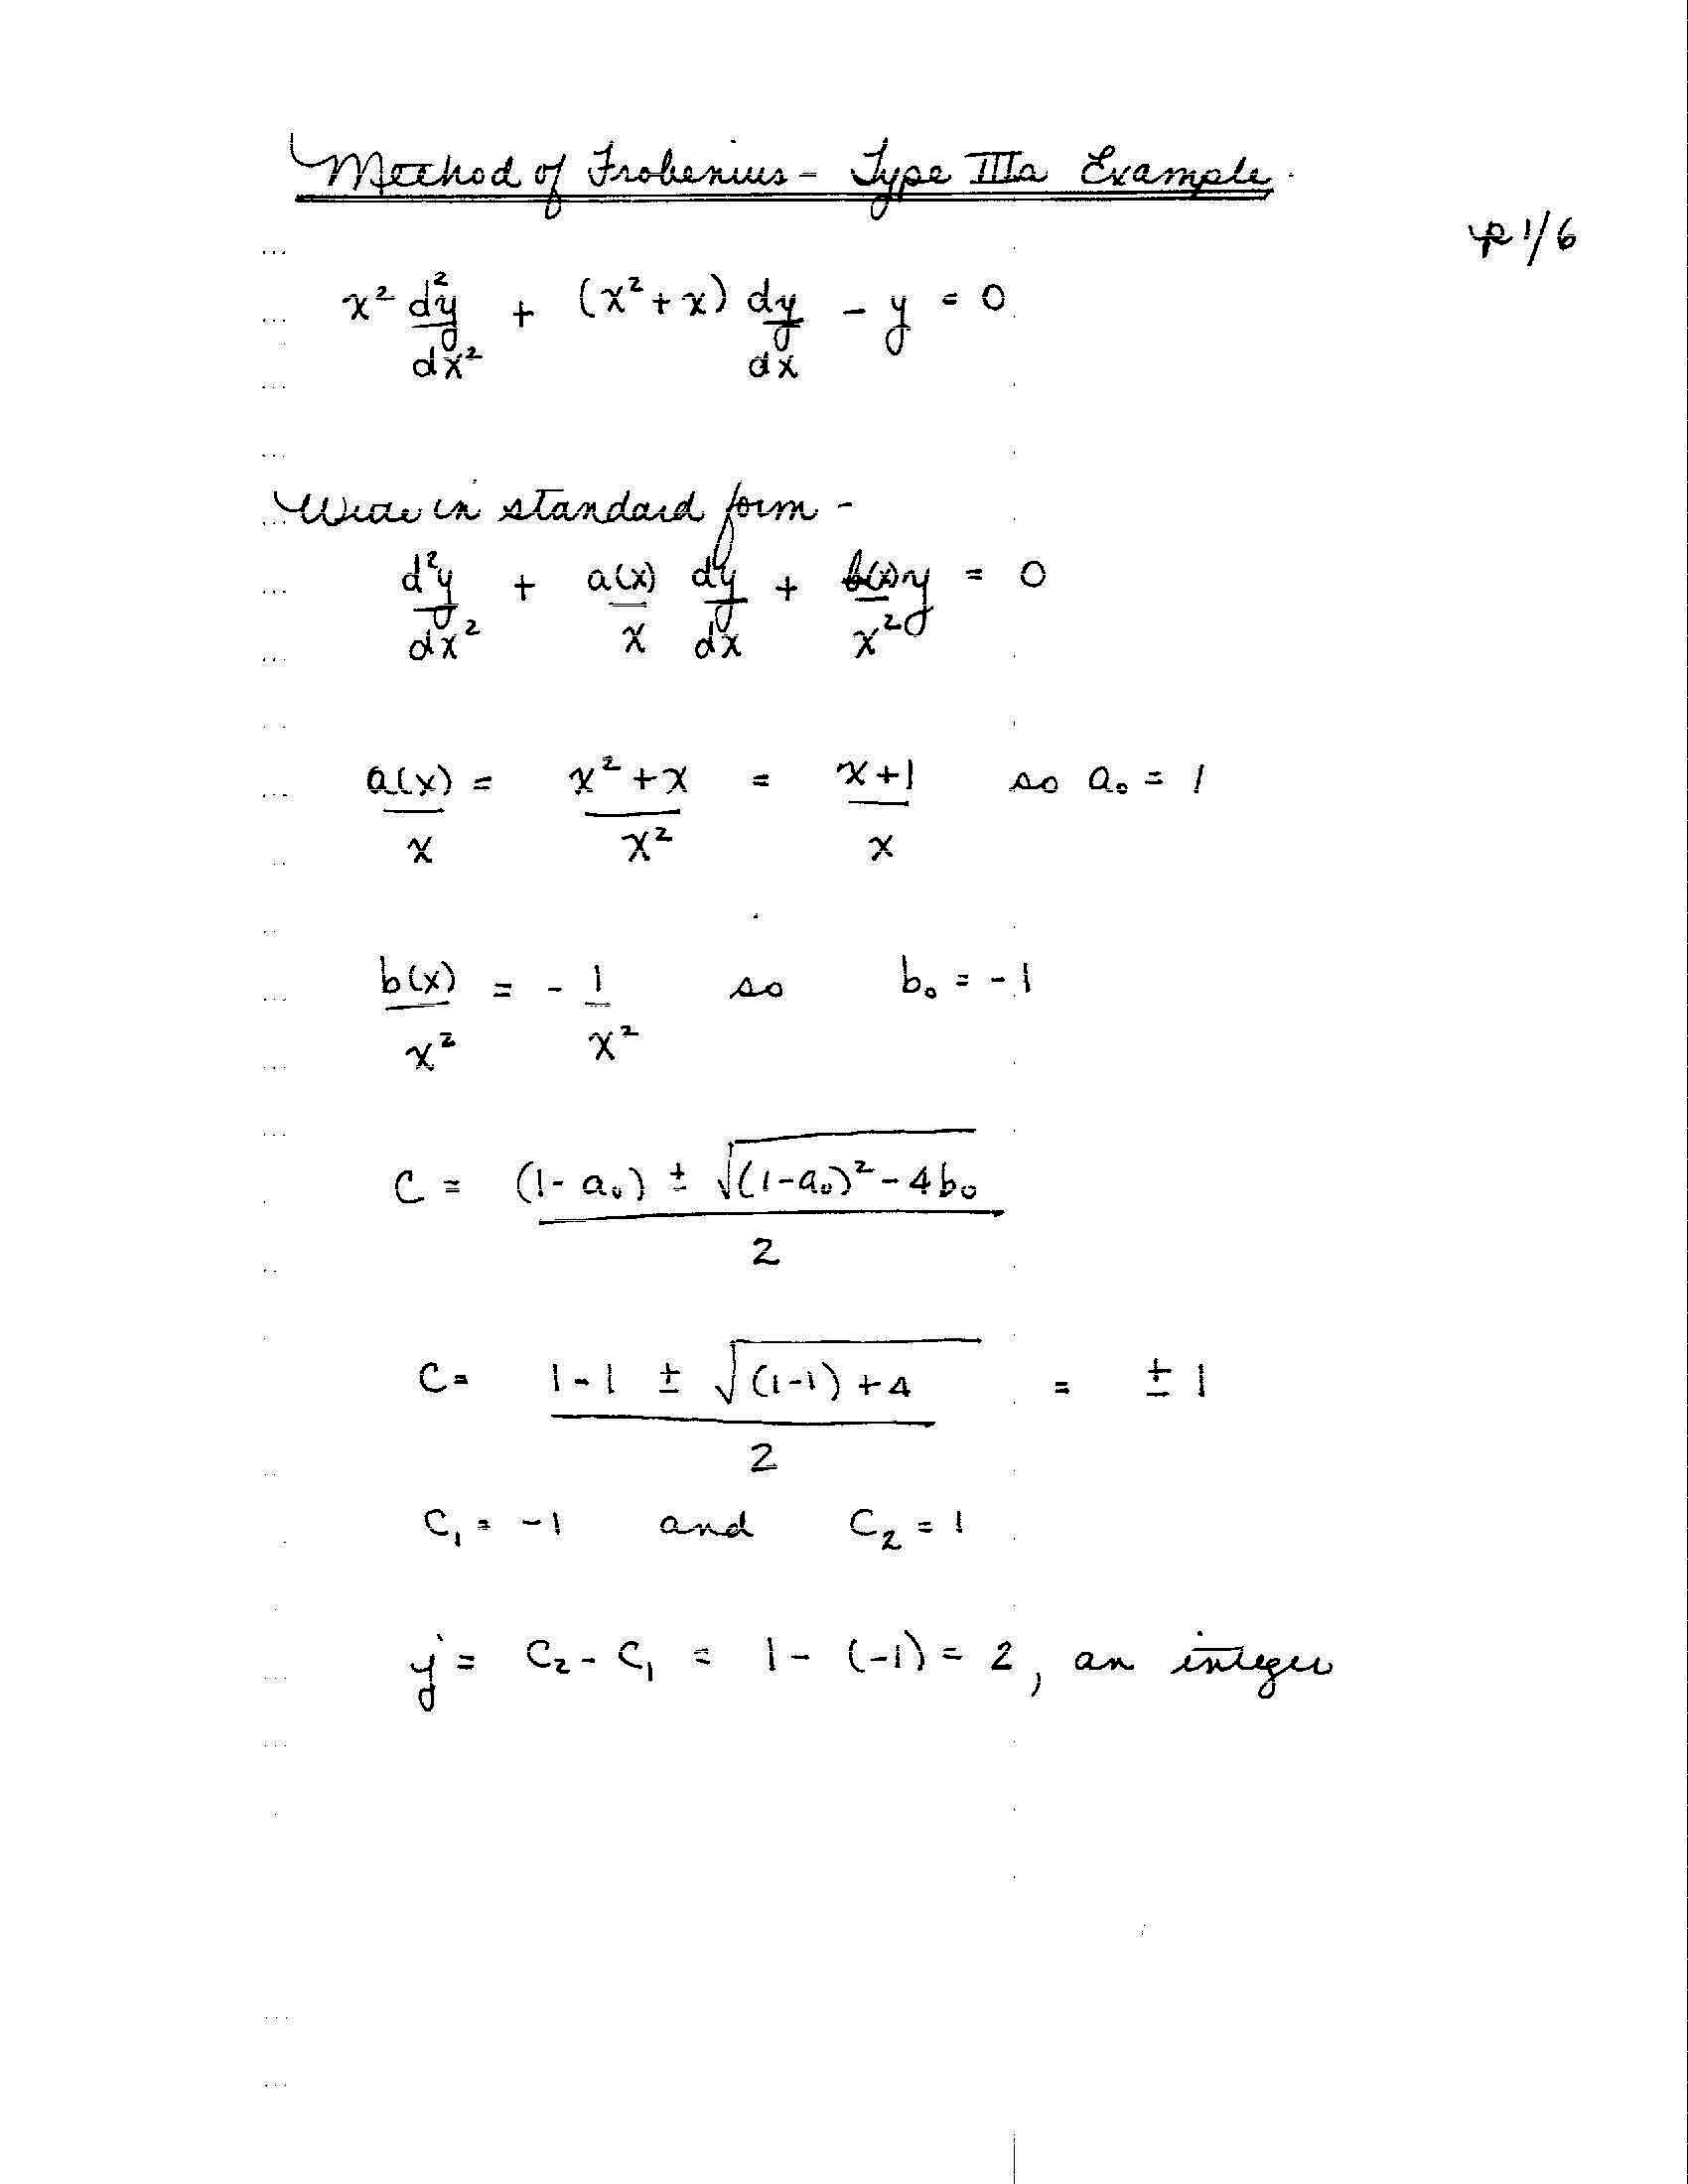 Method of Frobenius - Type IIIa Example
p 1/6
x² d²y/dx² + (x² + x) dy/dx - y = 0
Write in standard form -
d²y/dx² + a(x)/x dy/dx + b(x)/x² y = 0
a(x)/x = (x² + x)/x² = (x + 1)/x so a₀ = 1
b(x)/x² = - 1/x² so b₀ = -1
C = ((1 - a₀) ± √((1 - a₀)² - 4b₀))/2
C = (1 - 1 ± √((1 - 1) + 4))/2 = ± 1
C₁ = -1 and C₂ = 1
j = C₂ - C₁ = 1 - (-1) = 2, an integer